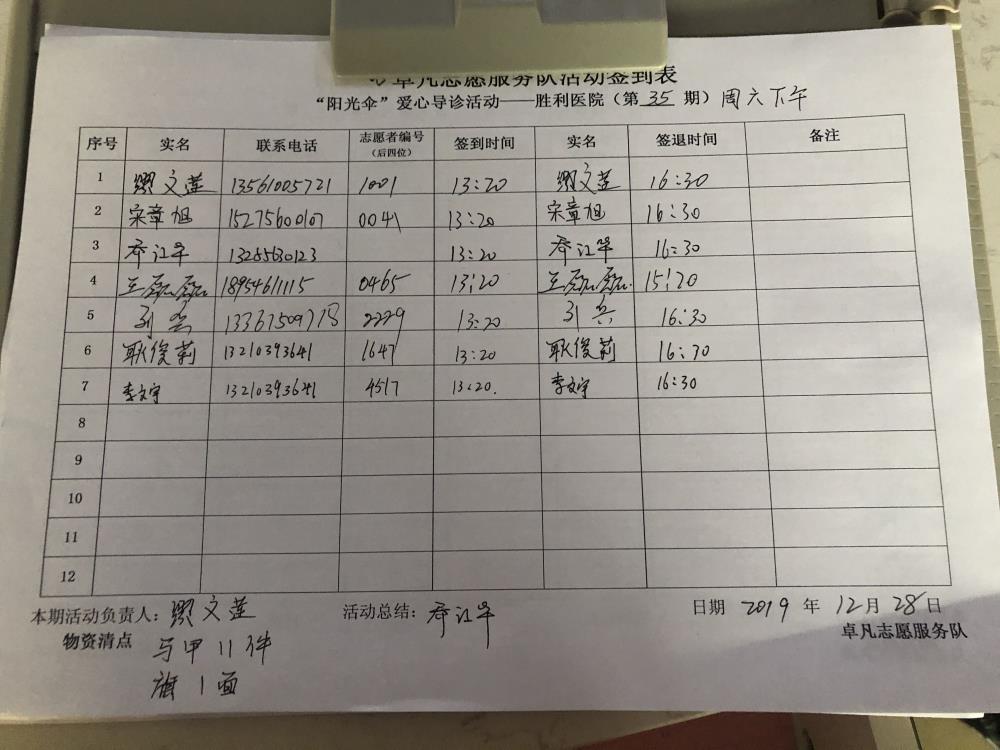 卓凡志愿服务队活动签到表
“阳光伞”爱心导诊活动——胜利医院（第 35 期）周六下午
序号 实名 联系电话 志愿者编号（后四位） 签到时间 实名 签退时间 备注
1 缪文莲 13561005721 1001 13:20 缪文莲 16:30
2 宋章旭 15275600107 0041 13:20 宋章旭 16:30
3 乔江华 13255630123 13:20 乔江华 16:30
4 王磊磊 18954611115 0465 13:20 王磊磊 15:20
5 刘兵 2229 13:20 刘兵 16:30
6 耿俊莉 13210393641 1647 13:20 耿俊莉 16:30
7 李文宇 13210393641 4517 13:20. 李文宇 16:30
8
9
10
11
12
本期活动负责人：缪文莲 活动总结：乔江华 日期 2019 年 12月 28日
物资清点 马甲 11件 卓凡志愿服务队
旗 1面